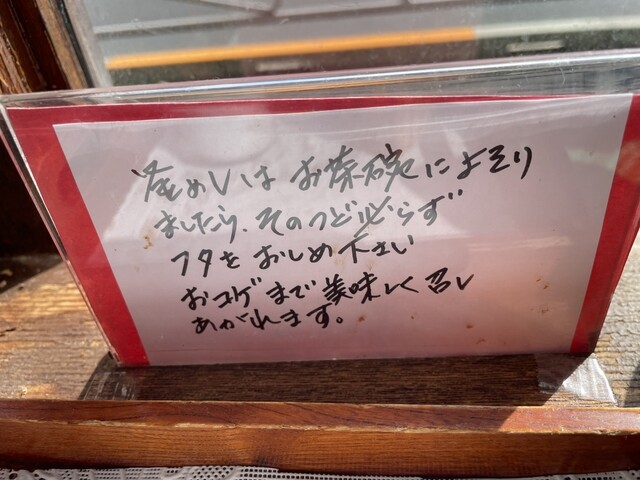 釜めしはお茶碗によそり
ましたら、そのつど必らず
フタをおしめ下さい
おコゲまで美味しく召し
あがれます。